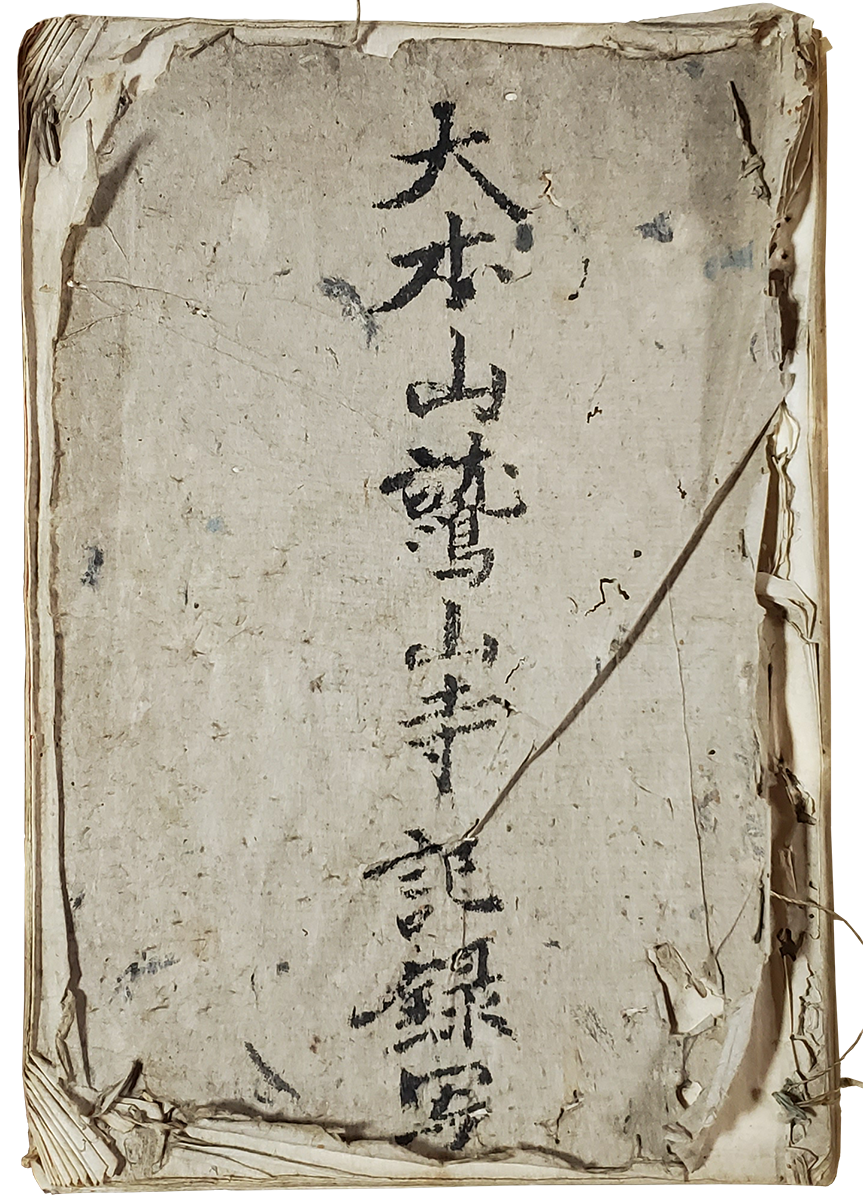 大本山鷲山寺記録写